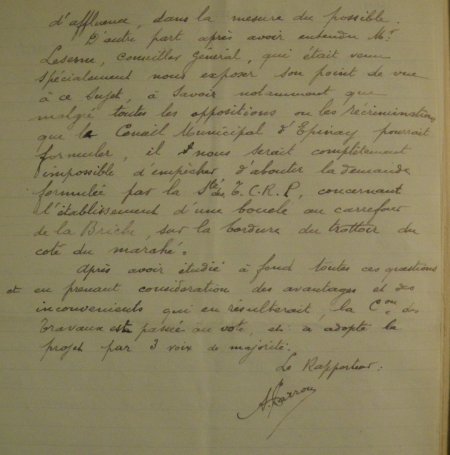 d'affluence, dans la mesure du possible.
D'autre part après avoir entendu Mr
Lesesne, Conseiller Général, qui était venu
spécialement nous exposer son point de vue
à ce sujet, à savoir notamment que
malgré toutes les oppositions ou les récriminations
que le Conseil Municipal d'Epinay pourrait
formuler, il nous serait complètement
impossible d'empêcher, d'abouter la demande
formulée par la Sté du T.C.R.P, concernant
l'établissement d'une boucle au carrefour
de la Briche, sur la bordure du trottoir du
coté du marché.
Après avoir étudié à fond toutes ces questions
et en prenant considération des avantages et des
inconvenients qui en résulterait, la Con des
Travaux est passée au vote, et a adopté le
projet par 3 voix de majorité.
Le Rapporteur: